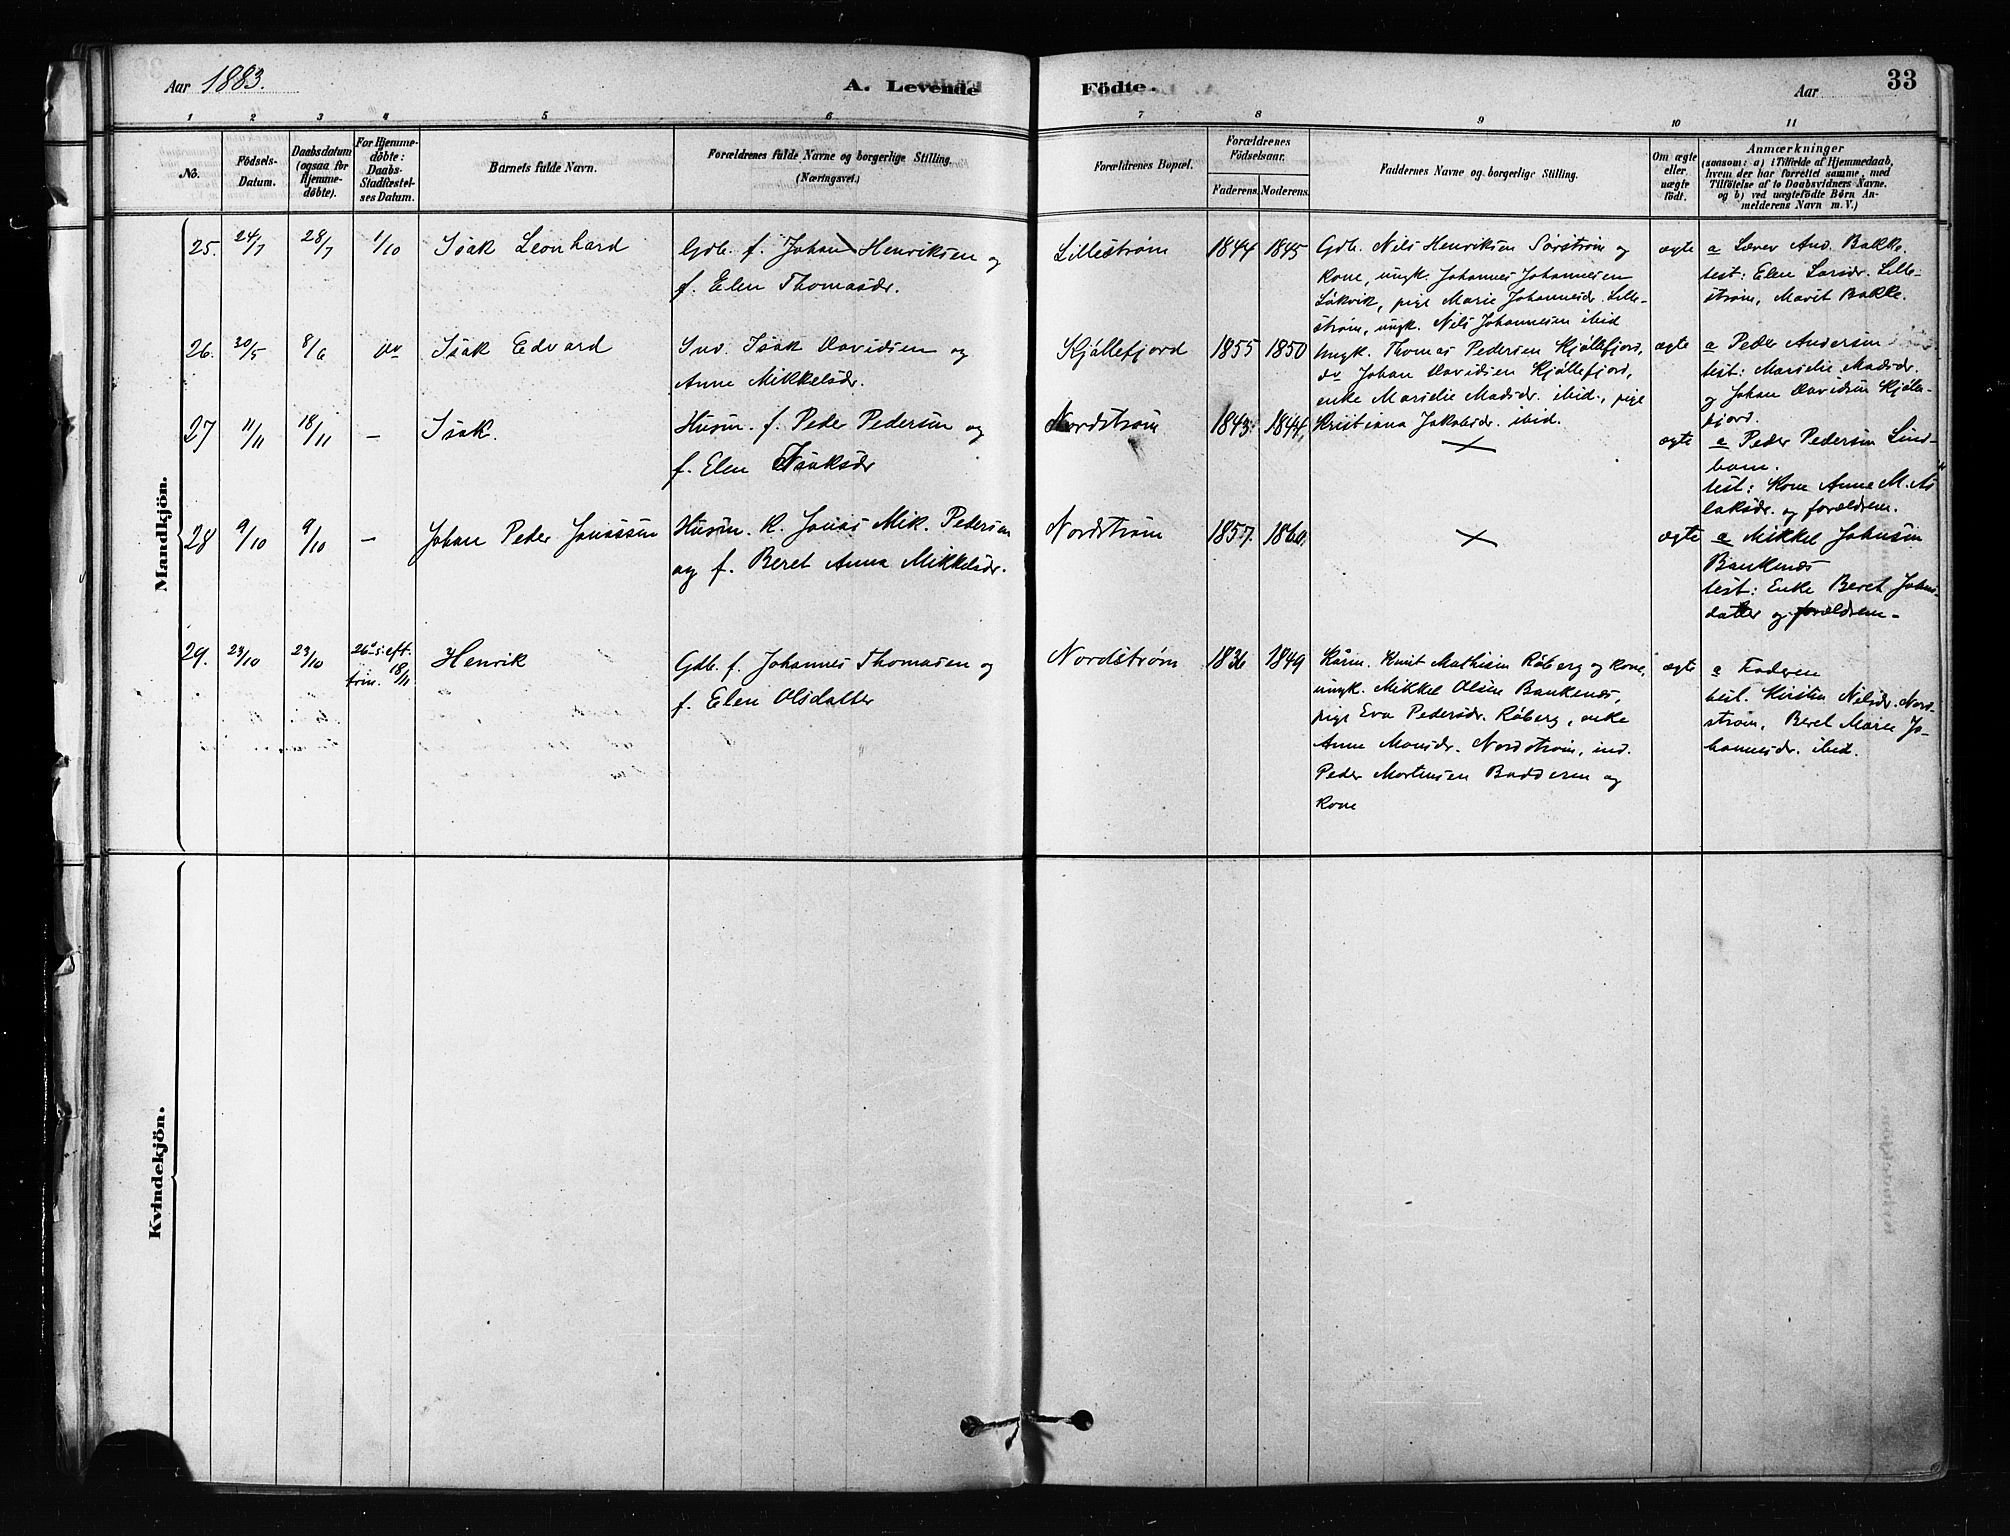 Aar 1883.
A. Levende
Födte.
Aar
33
1 2 3 4 5 6 7 8 9 10 11
No.
Födsels-
Datum.
Daabsdatum
(ogsaa for
Hjemme-
döbte).
For Hjemme-
döbte:
Daabs-
Stadfæstel-
ses Datum.
Barnets fulde Navn.
Forældrenes fulde Navne og borgerlige Stilling.
(Næringsvei.)
Forældrenes Bopæl.
Forældrenes
Födselsaar.
Faderens. Moderens.
Faddernes Navne og borgerlige Stilling.
Om ægte
eller
uægte
födt.
Anmærkninger
(saasom: a) i Tilfælde af Hjemmedaab,
hvem der har forrettet samme, med
Tilföielse af to Daabsvidners Navne.
og b) ved uægtefödte Börn An-
melderens Navn m. V.)
Mandkjön.
25. 24/7 28/7 1/10 Isak Leonhard
Gdb. f. Johan Henriksen og
f. Elen Thomasdr.
Lillestrøm 1844 1845
Gdb. Nils Henriksen Sørstrøm og
kone, ungk. Johannes Johannesen
Løkvik, pige Marie Johannesdr. Lille-
strøm, ungk. Nils Johannesen ibid
ægte
a Lærer And. Bakke.
test: Elen Larsdr. Lille-
strøm, Marit Bakke.
26. 30/5 8/6 do Isak Edvard
Inv. Isak Davidsen og
Anne Mikkelsdr.
Kjøllefjord 1855 1850
Ungk. Thomas Pedersen Kjøllefjord,
do Johan Davidsen Kjøllefjord,
enke Marselie Madsdr. ibid., pige
Kristiana Jakobsdr. ibid.
ægte
a Peder Andersen
test: Marselie Madsdr.
og Johan Davidsen Kjølle-
fjord.
27 11/11 18/11 — Isak.
Husm. f. Peder Pedersen og
f. Elen Isaksdr
Nordstrøm 1843. 1844.
×
ægte
a Peder Pedersen Lind-
bom.
test: Kone Anne M. As-
laksdr. og forældrene.
28 9/10 9/10 — Johan Peder Jonassen
Husm. k. Jonas Mik. Pedersen
og f. Beret Anna Mikkelsdr.
Nordstrøm 1857. 1860.
×
ægte
a Mikkel Johnsen
Bankenæs
test: Enke Beret Johns-
datter og forældrene-
29. 23/10 23/10 26de s. eft. trin. 18/11 Henrik
Gdb. f. Johannes Thomasen og
f. Elen Olsdatter
Nordstrøm 1836 1849
Kårm. Knut Mathisen Røberg og kone,
ungk. Mikkel Olsen Bankenæs,
pige Eva Pedersdr. Røberg, enke
Anne Monsdr. Nordstrøm, ind.
Peder Mortensen Badderen og
kone
ægte
a Faderen
test. Kirsten Nilsdr. Nord-
strøm, Beret Marie Jo-
hannesdr. ibid.
Kvindekjön.